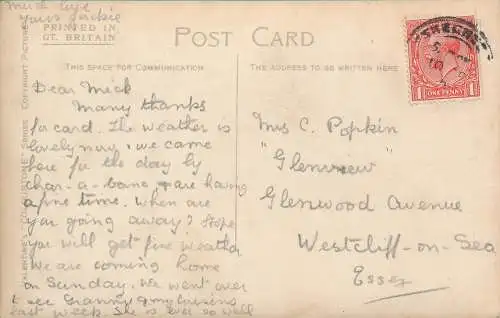 much love
yours Jackie
PRINTED IN
GT. BRITAIN
POST CARD
THIS SPACE FOR COMMUNICATION
THE ADDRESS TO BE WRITTEN HERE
Dear Mick
Many thanks
for card. The weather is
lovely now, we came
here for the day by
char-a-banc & are having
a fine time. When are
you going away? I hope
you will get fine weather
We are coming home
on Sunday. We went over
to see Granny & my cousins
last week. She is ever so well
Mrs C. Popkin
"Glenview"
Glenwood Avenue
Westcliff-on-Sea
Essex
1 ONE PENNY 1
SERIES COPYRIGHT PICTURE